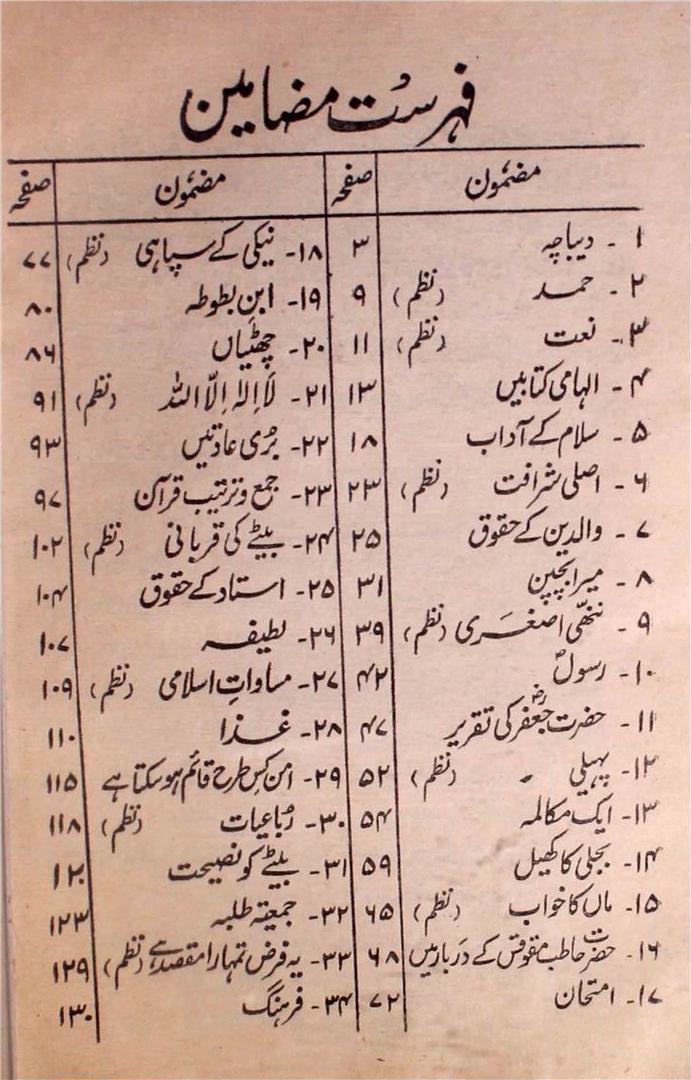 فہرست مضامین
مضمون صفحہ
۱ - دیباچہ ۳
۲ - حمد (نظم) ۹
۳ - نعت (نظم) ۱۱
۴ - الہامی کتابیں ۱۳
۵ - سلام کے آداب ۱۸
۶ - اصلی شرافت (نظم) ۲۳
۷ - والدین کے حقوق ۲۵
۸ - میرا بچپن ۳۱
۹ - ننھی اصغری (نظم) ۳۹
۱۰ - رسولؐ ۴۲
۱۱ - حضرت جعفرؓ کی تقریر ۴۷
۱۲ - پہیلی (نظم) ۵۲
۱۳ - ایک مکالمہ ۵۴
۱۴ - بجلی کا کھیل ۵۹
۱۵ - ماں کا خواب (نظم) ۶۵
۱۶ - حضرت حاطب مقوقس کے دربار میں ۶۸
۱۷ - امتحان ۷۲
مضمون صفحہ
۱۸ - نیکی کے سپاہی (نظم) ۷۷
۱۹ - ابن بطوطہ ۸۰
۲۰ - چھٹیاں ۸۶
۲۱ - لَا اِلٰہ اِلَّا اللّٰہ (نظم) ۹۱
۲۲ - بُری عادتیں ۹۳
۲۳ - جمع و ترتیب قرآن ۹۷
۲۴ - بیٹے کی قربانی (نظم) ۱۰۲
۲۵ - استاد کے حقوق ۱۰۴
۲۶ - لطیفہ ۱۰۷
۲۷ - مساواتِ اسلامی (نظم) ۱۰۹
۲۸ - غذا ۱۱۰
۲۹ - امن کس طرح قائم ہو سکتا ہے ۱۱۵
۳۰ - رُباعیات (نظم) ۱۱۸
۳۱ - بیٹے کو نصیحت ۱۲۰
۳۲ - جمعیتہ طلبہ ۱۲۳
۳۳ - یہ فرض تمہارا مقصد ہے (نظم) ۱۲۹
۳۴ - فرہنگ ۱۳۰